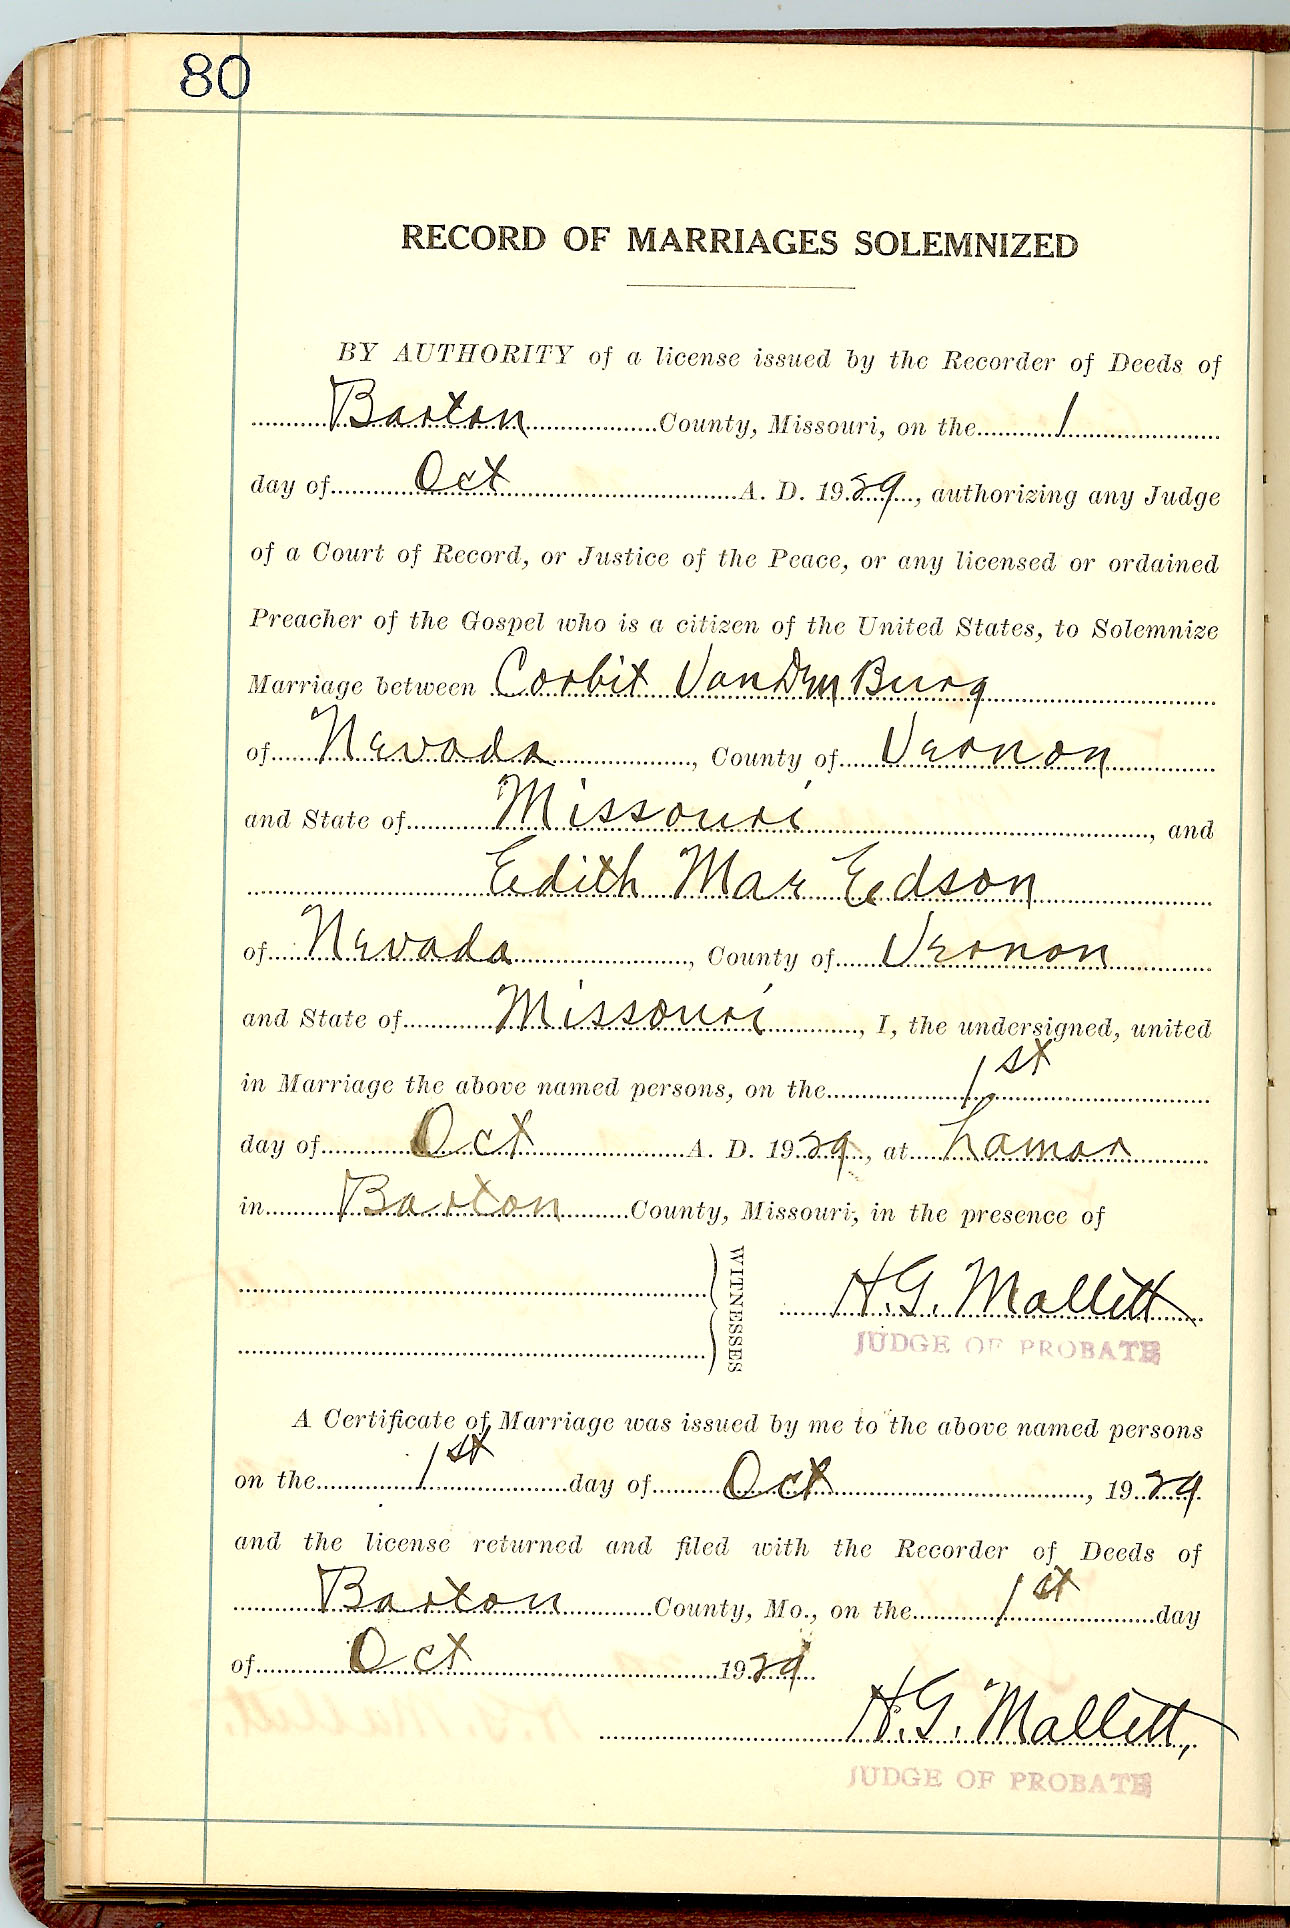 80
RECORD OF MARRIAGES SOLEMNIZED
BY AUTHORITY of a license issued by the Recorder of Deeds of
Barton County, Missouri, on the 1
day of Oct A. D. 1929, authorizing any Judge
of a Court of Record, or Justice of the Peace, or any licensed or ordained
Preacher of the Gospel who is a citizen of the United States, to Solemnize
Marriage between Corbit VanDenBurg
of Nevada, County of Vernon
and State of Missouri, and
Edith Mae Edson
of Nevada, County of Vernon
and State of Missouri, I, the undersigned, united
in Marriage the above named persons, on the 1st
day of Oct A. D. 1929, at Lamar
in Barton County, Missouri, in the presence of
WITNESSES
H. G. Mallett
JUDGE OF PROBATE
A Certificate of Marriage was issued by me to the above named persons
on the 1st day of Oct, 1929
and the license returned and filed with the Recorder of Deeds of
Barton County, Mo., on the 1st day
of Oct 1929
H. G. Mallett,
JUDGE OF PROBATE